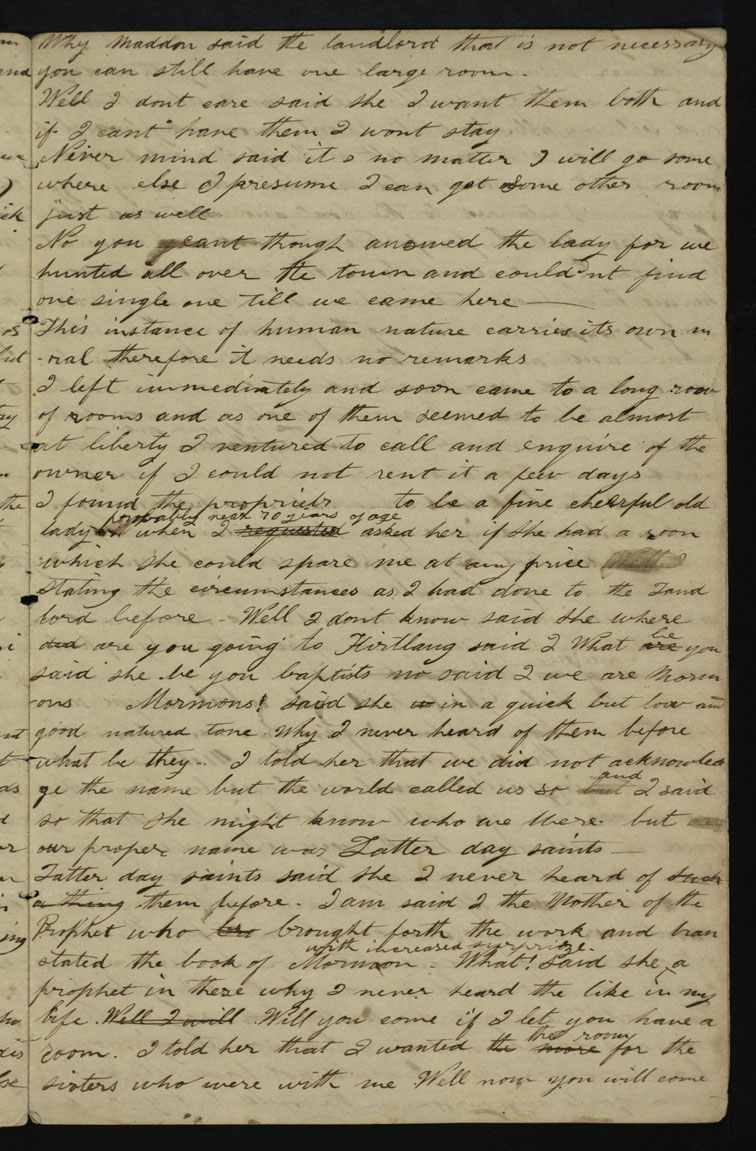 Why maddon said the landlord that is not necessary
you can still have one large room.
Well I dont care said she I want them both and
if I cant have them I wont stay.
Never mind said it s no matter I will go some
where else I presume I can get some other room
just as well
No you cant though answed the lady for we
hunted all over the town and could'nt find
one single one till we came here —
This instance of human nature carries its own m
-ral therefore it needs no remarks
I left immediately and soon came to a long row
of rooms and as one of them seemed to be almost
at liberty I ventured to call and enquire of the
owner if I could not rent it a few days
I found the to be a fine cheerful old
probably near 70 years of age
lady when I requested asked her if she had a room
which she could spare me at any price
stating the circumstances as I had done to the Land
lord before - Well I dont know said she where
did are you going to Kirtland said I What are be you
said she be you baptists no said I we are Morm
ons Mormons! said she in a quick but low and
good natured tone. Why I never heard of them before
what be they. I told her that we did not acknowled
ge the name but the world called us so but and I said
so that she might know who we were but
our proper name was Latter day saints —
Latter day saints said she I never heard of such
a thing them before. I am said I the Mother of the
Prophet who brought forth the work and tran
with increased surprize.
stated the book of Mormon. What! said she a
prophet in these why I never heard the like in my
life. Well I will Will you come if I let you have a
the room
room. I told her that I wanted the more for the
sisters who were with me Well now you will come